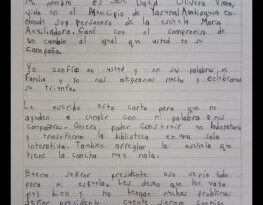 Mi nombre es José David Olivera Viana,
vivo en el Municipio de Yarumal Antioquia co
donde Soy personero de la escuela Maria
Auxiliadora. Gané con el compromiso de
un cambio al igual que usted en su
Campaña.
Yo confio en usted y en su palabra mi
Familia y yo nos alegramos mucho y celebramos
su triunfo.
Le escribo esta carta para que me
ayuden a cumplir con mi palabra a mis
compañeros. Quiero poder construir un laboratorio
y transformar la biblioteca en una sala
interativa. Tambien arreglar la escuela que
tiene la cancha muy mala.
Bueno señor presidente eso seria todo
para mi escuela. Les deseo que les vaya
muy bien y no tengan muchos problemas
señor presidente cuente siempre conmigo